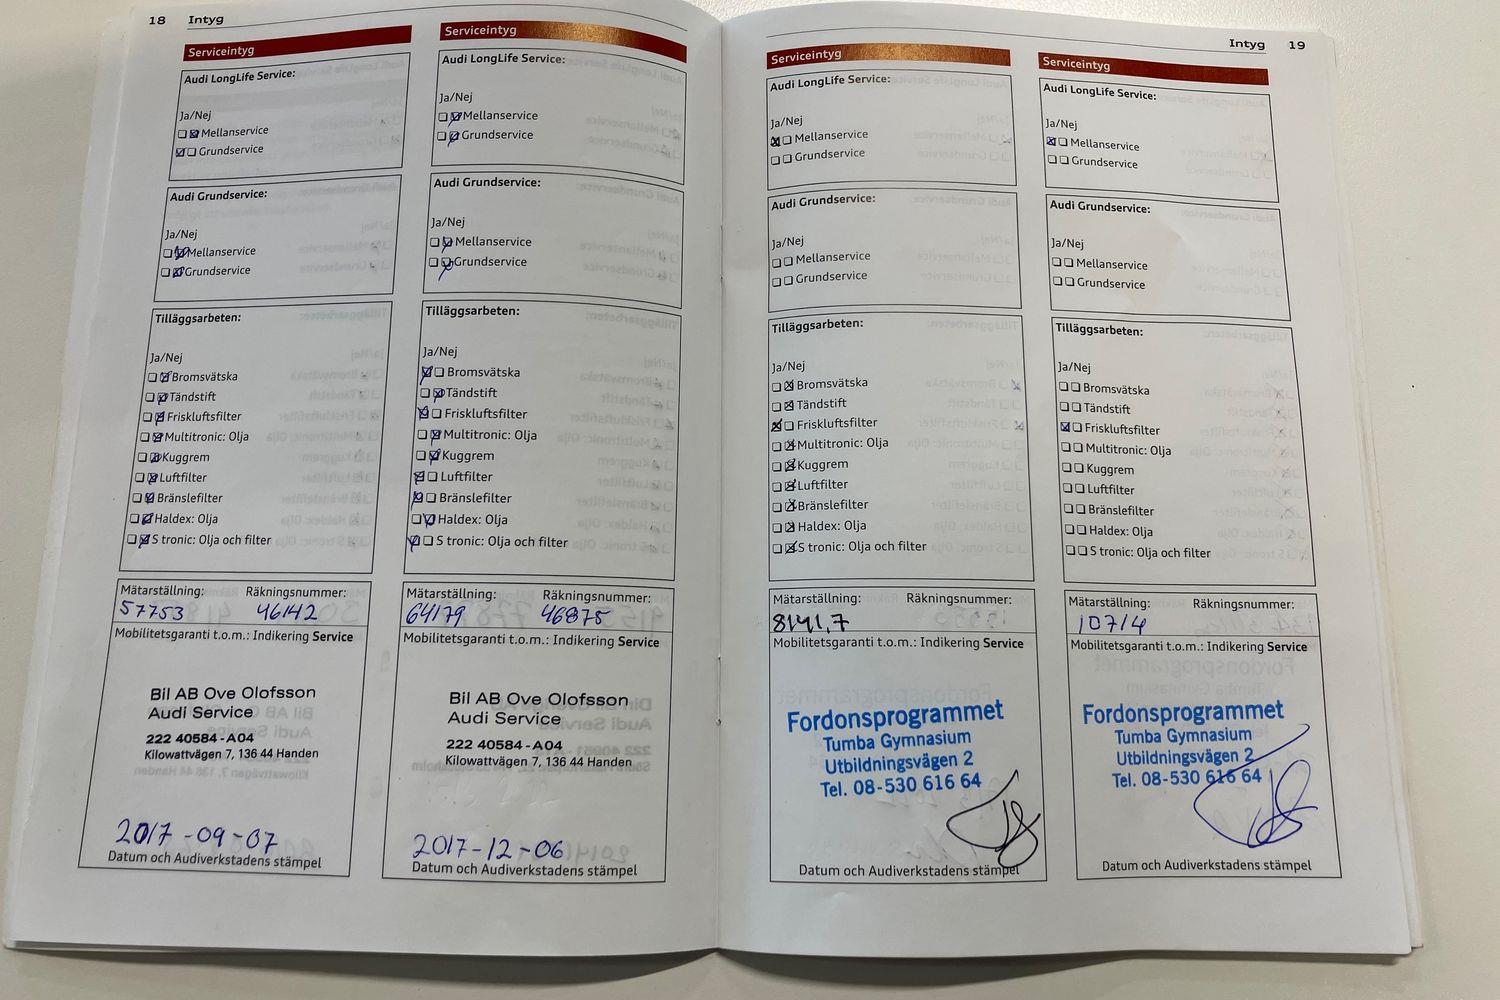 18 Intyg
Serviceintyg
Audi LongLife Service:
Ja/Nej
Mellanservice
Grundservice
Audi Grundservice:
Ja/Nej
Mellanservice
Grundservice
Tilläggsarbeten:
Ja/Nej
Bromsvätska
Tändstift
Friskluftsfilter
Multitronic: Olja
Kuggrem
Luftfilter
Bränslefilter
Haldex: Olja
S tronic: Olja och filter
Mätarställning: Räkningsnummer:
57753 46142
Mobilitetsgaranti t.o.m.: Indikering Service
Bil AB Ove Olofsson
Audi Service
222 40584-A04
Kilowattvägen 7, 136 44 Handen
2017-09-07
Datum och Audiverkstadens stämpel
Serviceintyg
Audi LongLife Service:
Ja/Nej
Mellanservice
Grundservice
Audi Grundservice:
Ja/Nej
Mellanservice
Grundservice
Tilläggsarbeten:
Ja/Nej
Bromsvätska
Tändstift
Friskluftsfilter
Multitronic: Olja
Kuggrem
Luftfilter
Bränslefilter
Haldex: Olja
S tronic: Olja och filter
Mätarställning: Räkningsnummer:
64179 46875
Mobilitetsgaranti t.o.m.: Indikering Service
Bil AB Ove Olofsson
Audi Service
222 40584-A04
Kilowattvägen 7, 136 44 Handen
2017-12-06
Datum och Audiverkstadens stämpel
Intyg 19
Serviceintyg
Audi LongLife Service:
Ja/Nej
Mellanservice
Grundservice
Audi Grundservice:
Ja/Nej
Mellanservice
Grundservice
Tilläggsarbeten:
Ja/Nej
Bromsvätska
Tändstift
Friskluftsfilter
Multitronic: Olja
Kuggrem
Luftfilter
Bränslefilter
Haldex: Olja
S tronic: Olja och filter
Mätarställning: Räkningsnummer:
8141,7
Mobilitetsgaranti t.o.m.: Indikering Service
Fordonsprogrammet
Tumba Gymnasium
Utbildningsvägen 2
Tel. 08-530 616 64
Datum och Audiverkstadens stämpel
Serviceintyg
Audi LongLife Service:
Ja/Nej
Mellanservice
Grundservice
Audi Grundservice:
Ja/Nej
Mellanservice
Grundservice
Tilläggsarbeten:
Ja/Nej
Bromsvätska
Tändstift
Friskluftsfilter
Multitronic: Olja
Kuggrem
Luftfilter
Bränslefilter
Haldex: Olja
S tronic: Olja och filter
Mätarställning: Räkningsnummer:
10714
Mobilitetsgaranti t.o.m.: Indikering Service
Fordonsprogrammet
Tumba Gymnasium
Utbildningsvägen 2
Tel. 08-530 616 64
Datum och Audiverkstadens stämpel